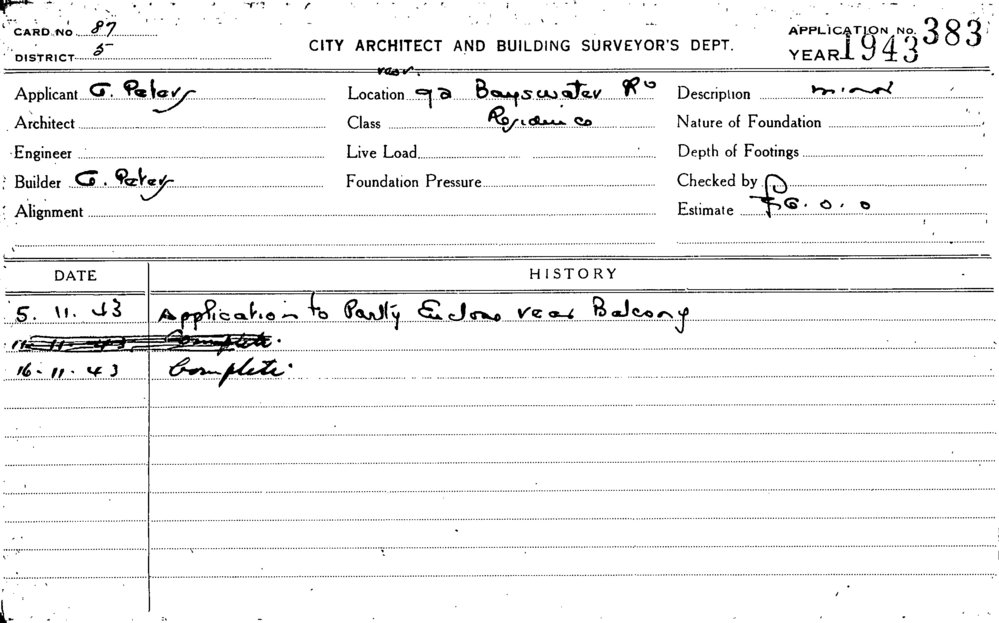 CARD No 87
DISTRICT 5
CITY ARCHITECT AND BUILDING SURVEYOR'S DEPT.
APPLICATION No. 383
YEAR 1943
Applicant G. Peters
Architect
Engineer
Builder G. Peters
Alignment
rear.
Location 92 Bayswater Rd
Class Residence
Live Load
Foundation Pressure
Description minor
Nature of Foundation
Depth of Footings
Checked by
Estimate £6.0.0
DATE HISTORY
5. 11. 43 Application to Partly Enclose rear Balcony
11-11-43 Complete.
16-11-43 Complete.